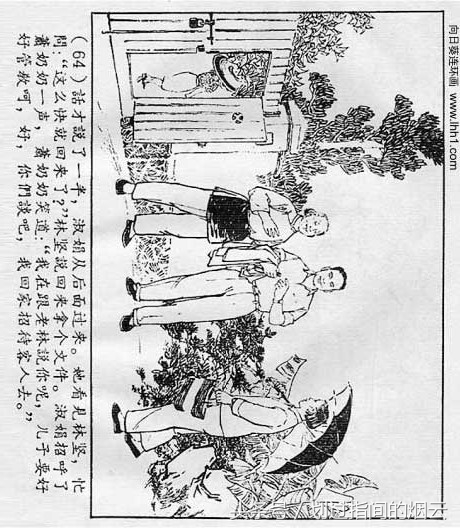 向日葵连环画 www.lhh1.com
(64) 話才說了一半，淑娟从后面过来。她看見林坚，忙
問：“这么快就回来了？”林坚说回来拿个文件。淑娟招呼了
蕭奶奶一声，蕭奶奶笑道：“我在跟老林说你呢，儿子要好
好管教呵，好，你們談吧，我回家招待客人去。”
指间的烟云